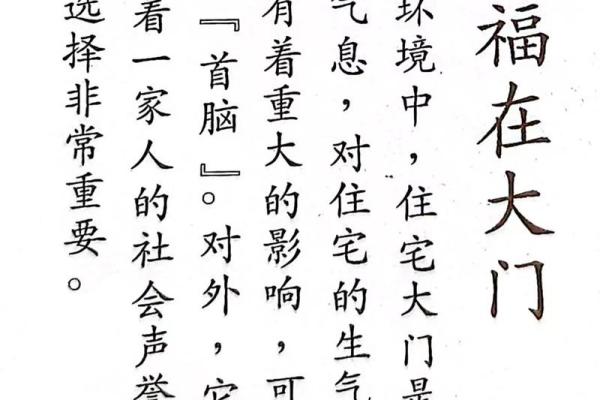 福在大门
环境中，住宅大门是
气息，对住宅的生气
有着重大的影响，可
『首脑』。对外，它
着一家人的社会声誉
选择非常重要。